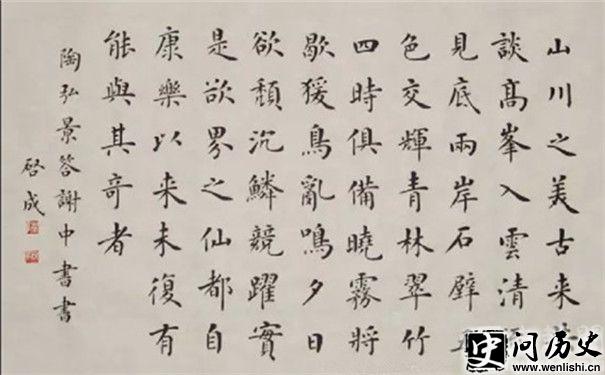 山川之美古来
談高峯入雲清
見底兩岸石壁
色交輝青林翠竹
四時俱備曉霧將
歇猨鳥亂鳴夕日
欲頹沉鱗競躍實
是欲界之仙都自
康樂以来未復有
能與其奇者
陶弘景答謝中書書
啓成
史问历史
www.wenlishi.cn